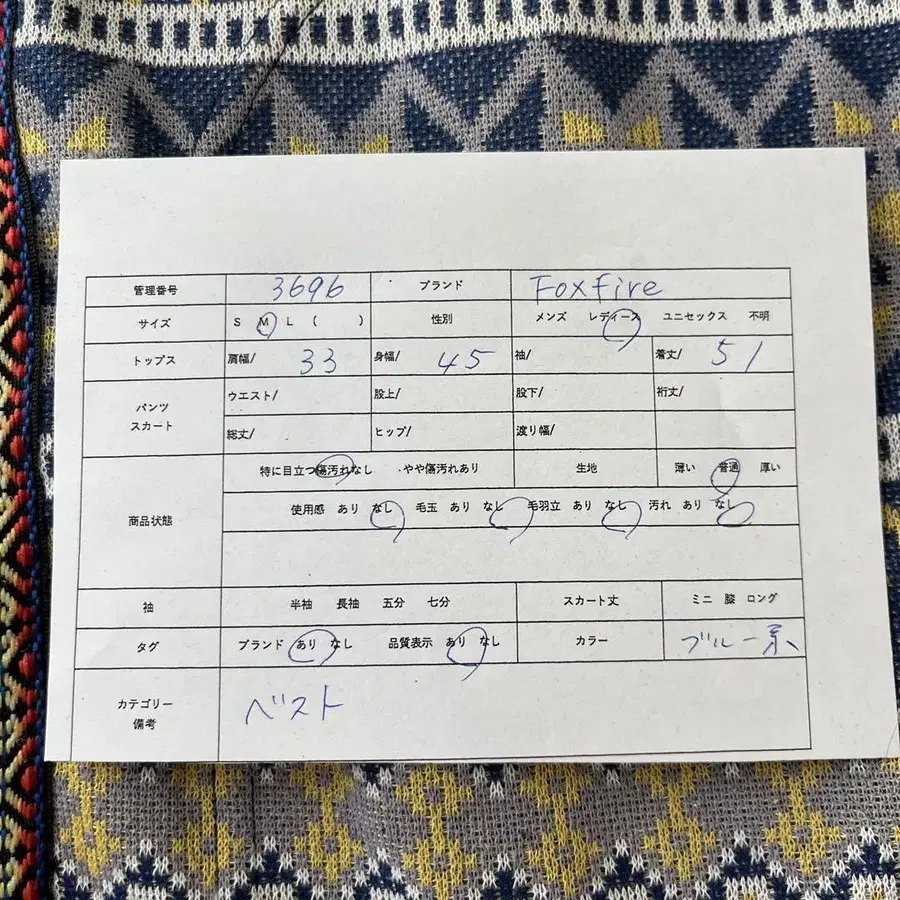 管理番号 3696 ブランド Foxfire
サイズ S M L ( ) 性別 メンズ レディース ユニセックス 不明
トップス 肩幅/ 33 身幅/ 45 袖/ 着丈/ 51
パンツ スカート ウエスト/ 股上/ 股下/ 裄丈/
総丈/ ヒップ/ 渡り幅/
特に目立つ傷汚れなし ・やや傷汚れあり 生地 薄い 普通 厚い
商品状態 使用感 あり なし 毛玉 あり なし 毛羽立 あり なし 汚れ あり なし
袖 半袖 長袖 五分 七分 スカート丈 ミニ 膝 ロング
タグ ブランド あり なし 品質表示 あり なし カラー ブルー系
カテゴリー 備考 ベスト